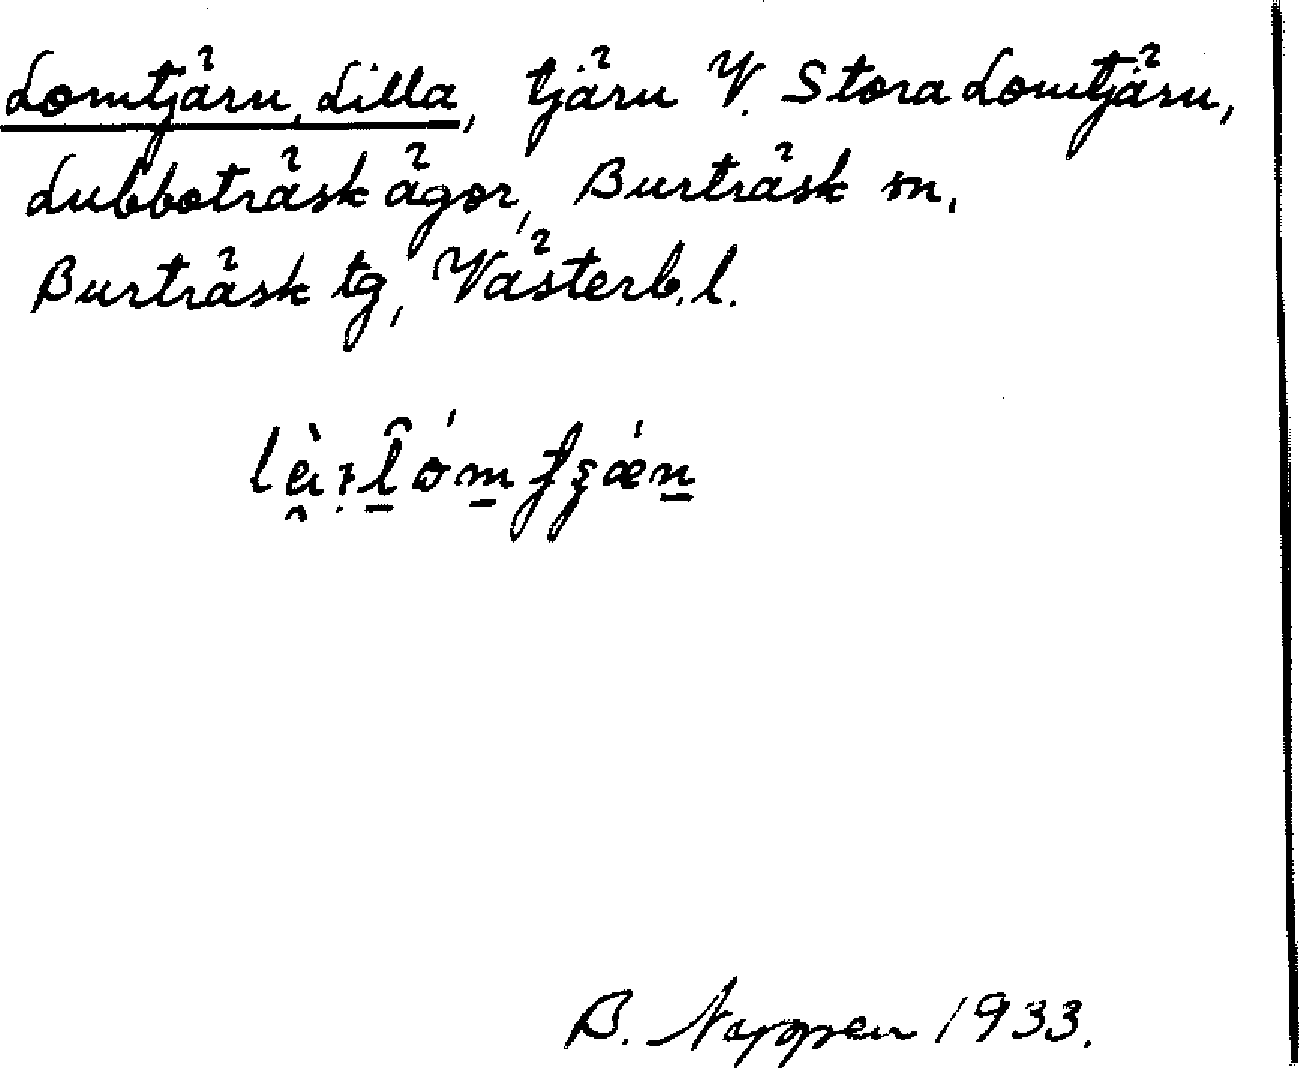 Lomtjärn, Lilla, tjärn V. Stora Lomtjärn,
Lubboträsk ägor, Burträsk sn,
Burträsk tg, Västerb. l.
B. 1933.